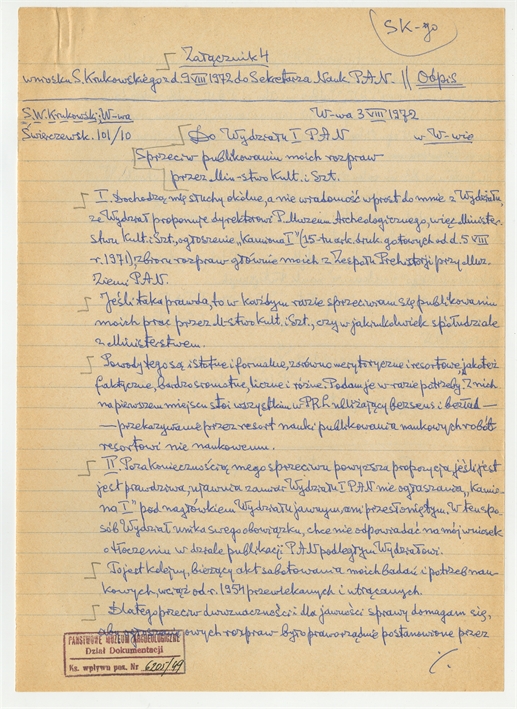 SK-go
Załącznik 4
wniosku S. Krukowskiego z d. 9 VIII 1972 do Sekretarza Nauk. P.A.N. || Odpis
S.W. Krukowski, W-wa
W-wa 3 VIII 1972
Świerczewsk. 101/10
Do Wydziału I PAN
w W-wie
Sprzeciw publikowaniu moich rozpraw
przez Min-stwo Kult. i Szt.
I. Dochodzą mię słuchy okólne, a nie wiadomość wprost do mnie z Wydziału,
że Wydział proponuje dyrektorowi P. Muzeum Archeologicznego, więc Ministe-
stwu Kult. i Szt., ogłoszenie „Kamiona I" (15-tu ark. druk. gotowych od d. 5 VIII
r. 1971), zbioru rozpraw głównie moich z Zespołu Prehistorji przy Muz.
Ziemi P.A.N.
Jeśli taka prawda, to w każdym razie sprzeciwiam się publikowaniu
moich prac przez M-stwo Kult. i Szt., czy w jakimkolwiek spółudziale
z Ministerstwem.
Powody tego są istotne i formalne, zarówno merytoryczne i resortowe, jak też
faktyczne, bardzo sromotne, liczne i różne. Podam je w razie potrzeby. Z nich
na pierwszem miejscu stoi wszystkim w PRL ubliżający bezsens i bezład —
— przekazywanie przez resort nauki publikowania naukowych robót
resortowi nie naukowemu.
II. Poza koniecznością mego sprzeciwu powyższa propozycja, jeśli jest
jest prawdziwa, ujawnia zamiar Wydziału I PAN nie ogłaszania „Kamio-
na I" pod nagłówkiem Wydziału jawnym, ani przesłoniętym. W ten spo-
sób Wydział unika swego obowiązku, chce nie odpowiadać na mój wniosek
o tłoczeniu w dziale publikacji PAN podległym Wydziałowi.
To jest kolejny, bieżący akt sabotowania moich badań i potrzeb nau-
kowych, wciąż od r. 1954 przewlekanych i utrącanych.
Dlatego przeciw dwuznaczności i dla jawności sprawy domagam się,
aby ogłoszenie owych rozpraw było praworządnie postanowione przez
PAŃSTWOWE MUZEUM ARCHEOLOGICZNE
Dział Dokumentacji
Ks. wpływu poz. Nr 6205/49
./.